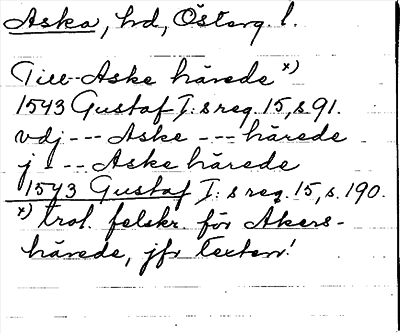 Aska, hd, Österg. l.
Till Aske härede x)
1543 Gustaf I:s reg. 15, s 91.
vdj --- Aske --- härede
j --- Aske härede
1543 Gustaf I:s reg. 15, s. 190.
x) trol. felskr. för Akers-
härede, jfr texten!